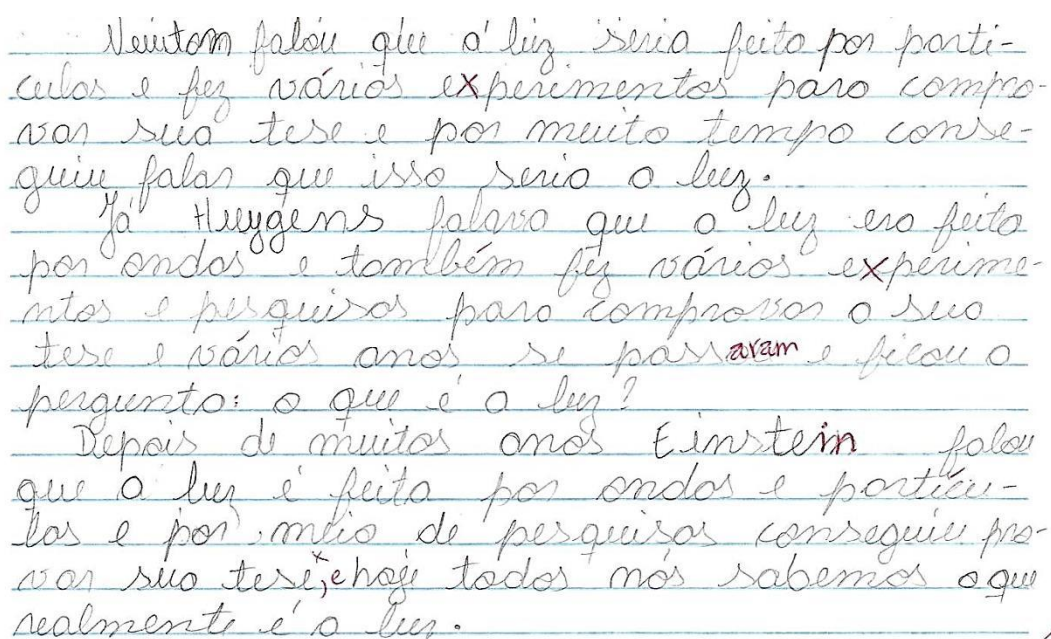 Newtom falou que a luz seria feita por parti-
culas e fez vários experimentos para compro-
var sua tese e por muito tempo conse-
guiu falar que isso seria a luz.
Já Huygens falava que a luz era feita
por ondas e também fez vários experime-
ntos e pesquisas para comprovar a sua
tese e vários anos se passaram e ficou a
pergunta: o que é a luz?
Depois de muitos anos Einstein falou
que a luz é feita por ondas e partícu-
las e por meio de pesquisas conseguiu pro-
var sua tese, e hoje todos nós sabemos o que
realmente é a luz.